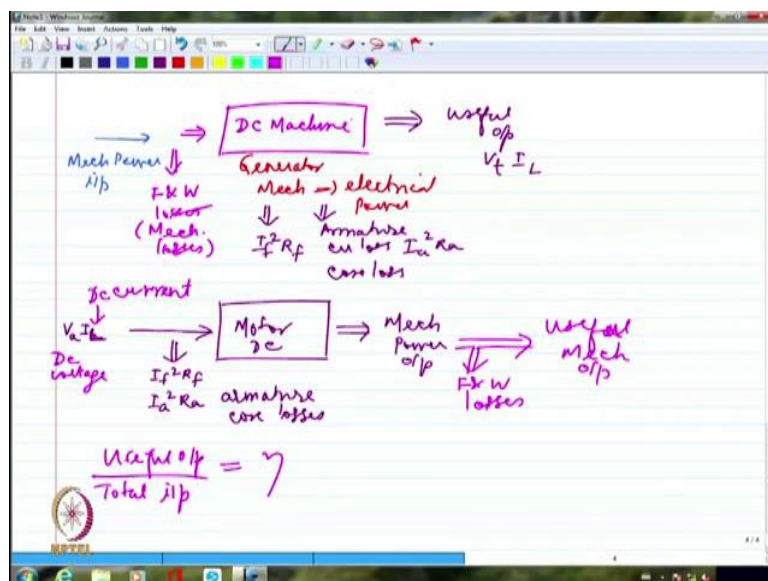 Note1 - Windows Journal
File Edit View Insert Actions Tools Help
100%
B I
⇒ DC Machine ⇒ useful
o/p
Vt IL
Mech Power
i/p
F&W
losses
(Mech.
losses)
Generator
Mech → electrical
Power
If²Rf
Armature
cu loss Ia²Ra
core loss
DC current
Va IL
DC
voltage
Motor
DC
⇒ Mech
Power
o/p
Useful
Mech
o/p
F&W
losses
If²Rf
Ia²Ra armature
core losses
Useful o/p
Total i/p
= η
NPTEL
4 / 4
4